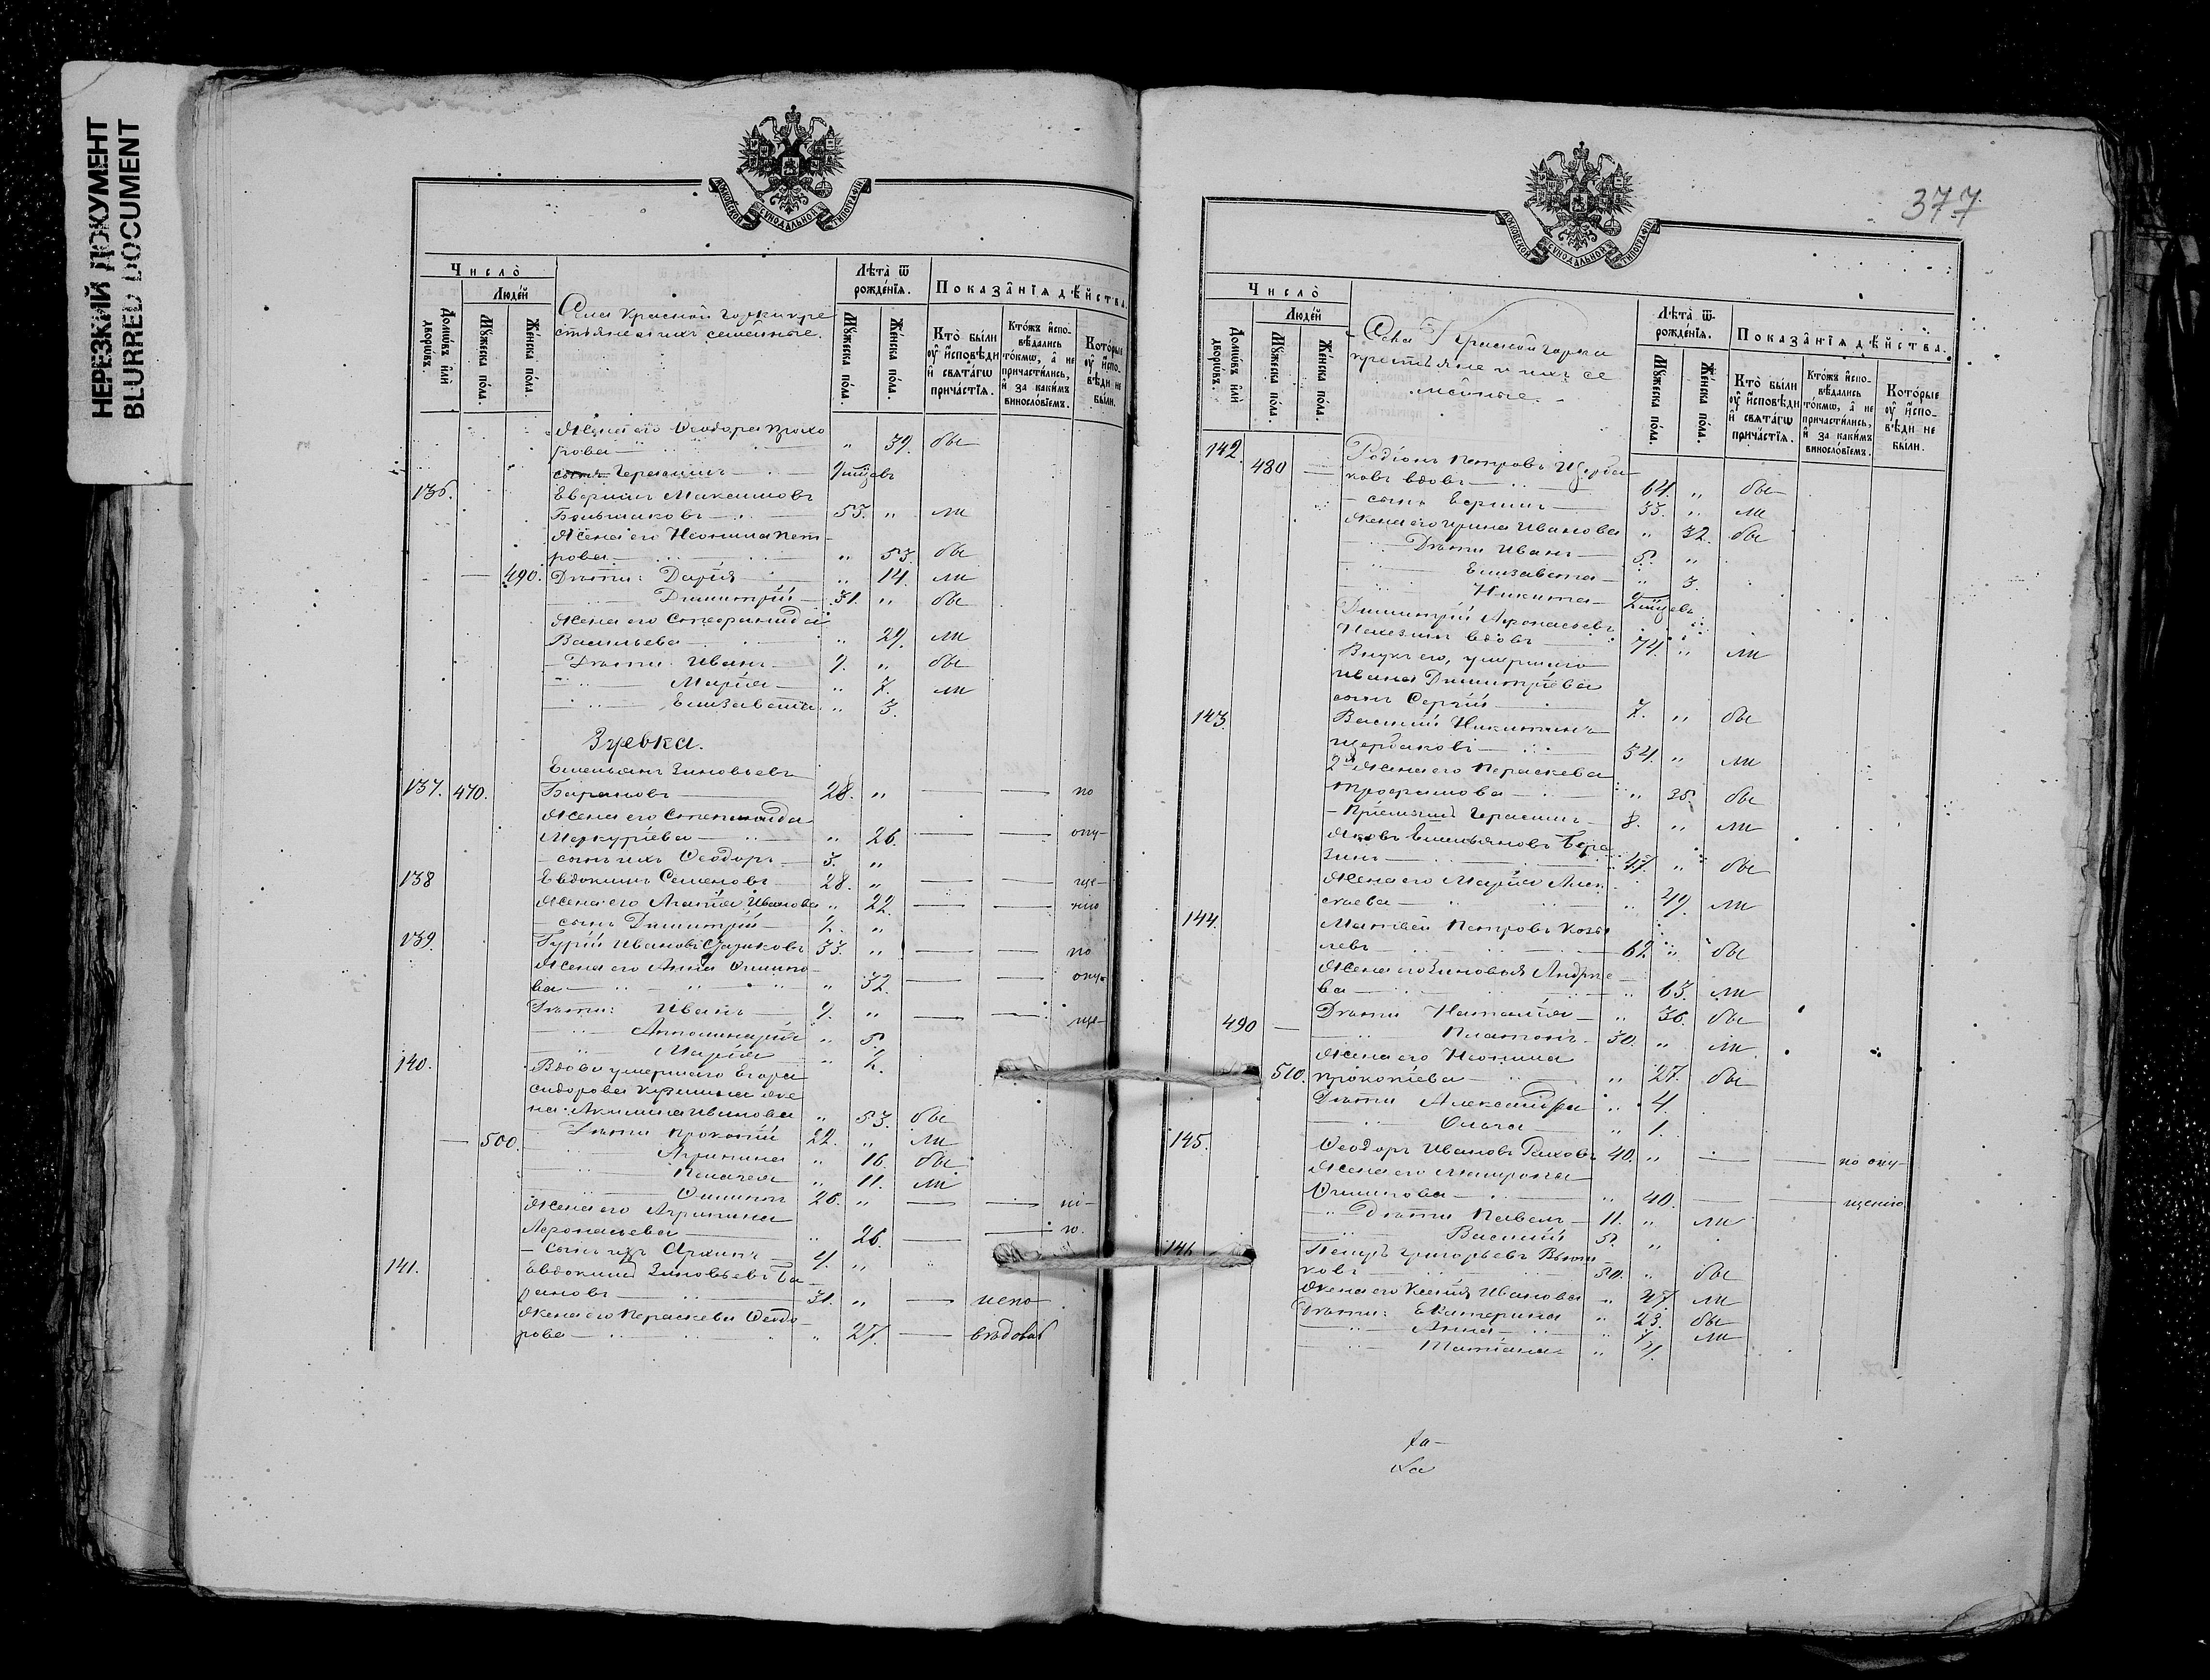 НЕРЕЗКИЙ ДОКУМЕНТ
BLURRED DOCUMENT
МОСКОВСКОЙ СѴНОДАЛЬНОЙ ТИПОГРАФІИ
Число̀
Людей
Домѡвъ илѝ дворѡвъ.
Мꙋжеска пола.
Женска пола.
Села Красной Горки кре
стьяне и ихъ семейные.
Лѣта̀ ѿ рожденїѧ.
Мꙋжеска пола.
Женска пола.
Показанїѧ дѣйства.
Кто̀ были оу исповѣди и свѧтагѡ причастїѧ.
Ктожъ испо-вѣдались токмѡ, а не причастились, и за какимъ винословїемъ.
Которые оу испо-вѣди не были.
Жена его Ѳеодора Прохо
рова — " 39. бы
сынъ Герасимъ — 9 мѣсѧцевъ
136. Максимовъ
Большаковъ — 53. " ли
Жена его Неонила Пет
рова — " 53. бы
— 490. Дѣти: Дарія — " 14. ли
Димитрій — 31. " бы
Жена его Стефанида
Васильева — " 29. ли
— Дѣти: Иванъ — 9. " бы
Марія — " 7. ли
Елизавета " 3.
Зуевка.
Емельянъ Зиновьевъ
137. 470. Барановъ — 28. " — — по
Жена его Степанида
Меркуріева — " 26. — — опу-
— сынъ ихъ Ѳеодоръ — 3. "
138 Евдокимъ Семеновъ — 28. " — — ще-
Жена его Агафія Иванова " 22. — — нію
— сынъ Димитрій — 2. "
139. Гурій Ивановъ 33. " — — по
Жена его Анна Филипо-
ва — " 32. — — опу-
Дѣти: Иванъ — 9. " — — ще-
" 5.
Марія " 2.
140. Вдова умершаго Егора
Сидорова Кузьмина же
на Акилина Иванова " 53. бы
— 500. Дѣти Прокопій 22. " ли
Агрипина " 16. бы
Пелагея " 11. ли
Филипъ 26. " — — ні-
Жена его Агрипина
Аѳонасьева — " 26. — — ю.
— сынъ ихъ Архипъ — 4. "
141. Евдокимъ Зиновьевъ Ба-
рановъ — 31. " — испо
Жена его Параскева Ѳеодо-
рова — " 27. — вѣдовал
377
МОСКОВСКОЙ СѴНОДАЛЬНОЙ ТИПОГРАФІИ
Число̀
Людей
Домѡвъ илѝ дворѡвъ.
Мꙋжеска пола.
Женска пола.
Села Красной Горки
крестьяне и ихъ се
мейные.
Лѣта̀ ѿ рожденїѧ.
Мꙋжеска пола.
Женска пола.
Показанїѧ дѣйства.
Кто̀ были оу исповѣди и свѧтагѡ причастїѧ.
Ктожъ испо-вѣдались токмѡ, а не причастились, и за какимъ винословїемъ.
Которые оу испо-вѣди не были.
142. 480 — Родіонъ Петровъ Щерба
ковъ вдовъ — 64. " бы
— сынъ — 33. " ли
Жена его Ирина Иванова " 32. бы
Дѣти Иванъ — 5. "
Елизавета — " 3.
Никита — 2 мѣсѧцевъ
Димитрій Аѳонасьевъ
вдовъ — 74. " ли
Внукъ его, умершаго
Ивана Димитріева
сынъ Сергій — 7. " бы
143. Василій Никитинъ
Щербаковъ — 54. " ли
2я Жена его Параскева
Трофимова — " 35. бы
— Пріемышъ Герасимъ — 8. " ли
Яковъ Емельяновъ Бере
зинъ — 47. " бы
Жена его Марія Алек
сѣева — " 49. ли
144. Матвей Петровъ Козы
ревъ — 62 " бы
Жена его Зиновья Андрее
ва — " 63. ли
Дѣти Наталія — " 36. бы
490 — Платонъ — 30. " ли
Жена его Неонила
510. Прокопіева — " 27. бы
Дѣти Александра " 4.
Ольга — " 1.
145. Ѳеодоръ Ивановъ 40. " — — по опу-
Жена его Матрона
Филипова — " 40. — — щенію
Дѣти Павелъ — 11. " ли
Василій 5. "
146 Петръ Григорьевъ
ковъ — 50. " бы
Жена его Ксенія Иванова " 47. ли
Дѣти: Екатерина " 23. бы
Анна — " ли
Татіана "